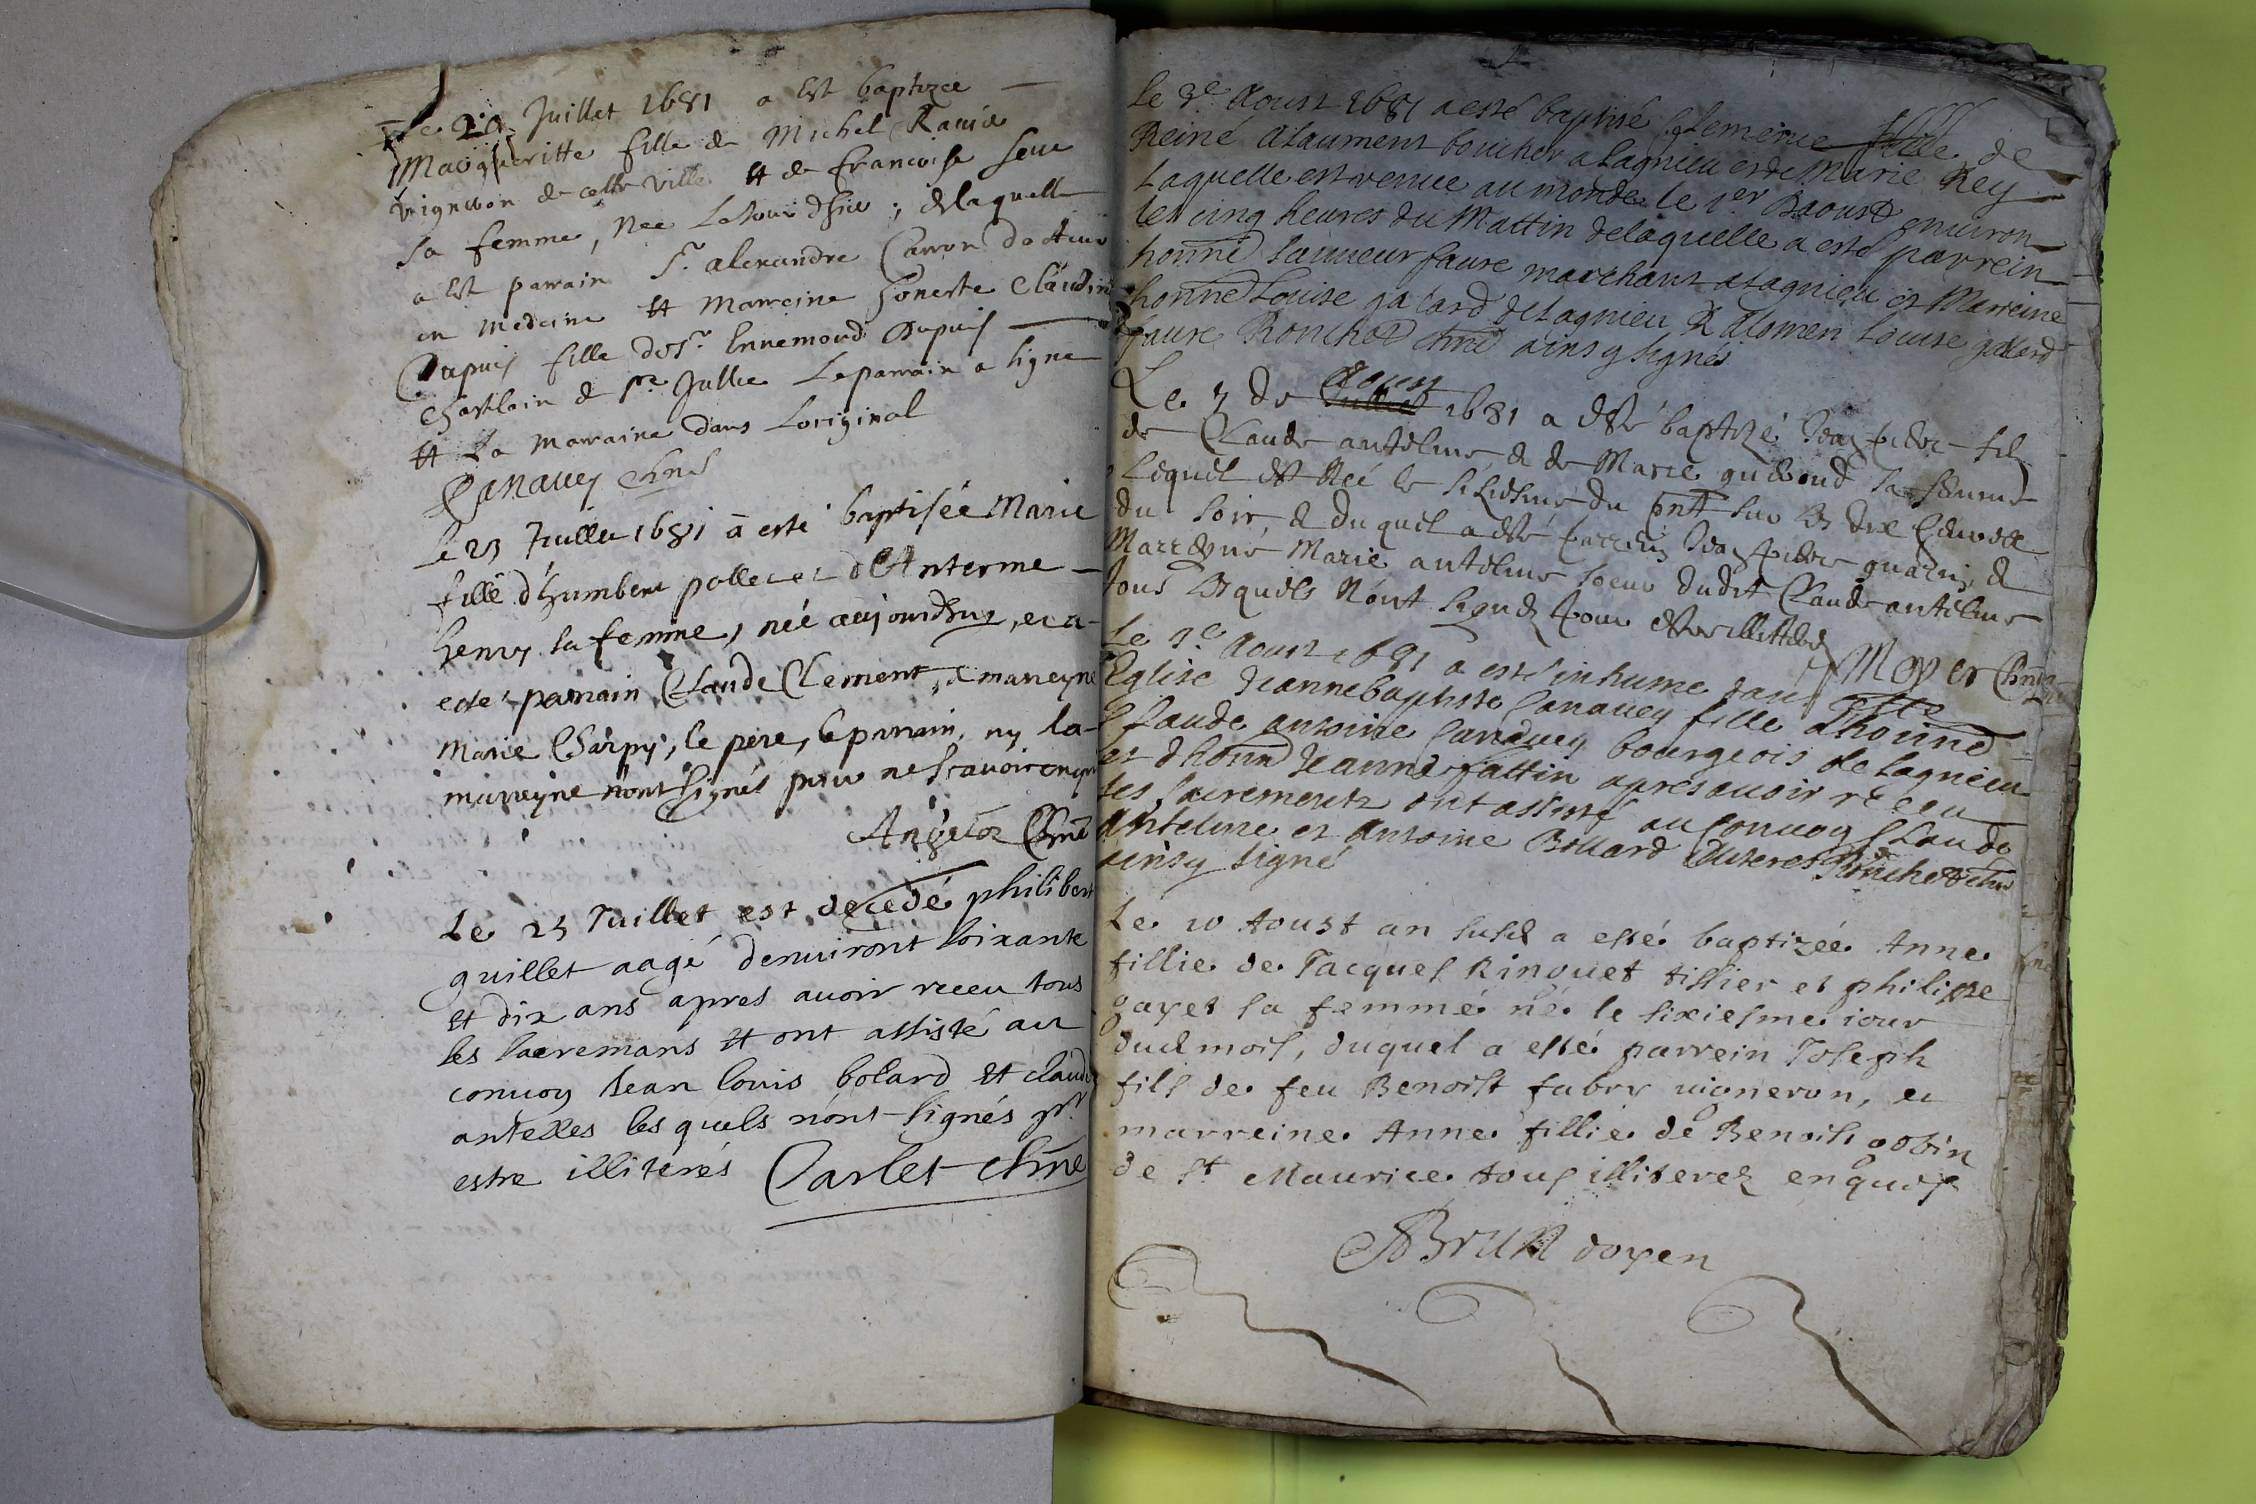 Le 20 Juillet 1681 a est baptizee
Margueritte fille de Michel Rauie
vigneron de cette ville et de francoise
sa femme, nee Le Jour dhier ; de laquelle
a est parrain Sr. alexandre Carron docteur
en medecine et marreine honeste Claudine
Dupuis fille de Sr. Ennemond Dupuis
Chastelain de st Jullie Le parrain a signe
et La marraine dans Loriginal
Canauey chne
le 23 Juillet 1681 a esté baptisée Marie
fille d'humbert pollet et d'Anterme
henry sa femme, néé aujourdhuy, et a
esté parrain Claude Clement, & marreyne
Marie Charpy, le pere, le parrain, ny la
marreyne n'ont signés pour ne scavoir enquis
Chne
Le 25 Juillet est decedé philibert
guillet aagé denuiront soixante
et dix ans apres auoir receu tous
les sacremans et ont assisté au
conuoy Jean louis bolard et claude
antelles les quels n'ont signés pr
estre illiterés Carlet chne
Le 3e Aoust 1681 a esté baptisé Clemence fille de
Reiné Alaument boucher a Lagnieu et de Marie Rey
Laquelle est venue au monde le 1er Daoust enuiron
les cinq heures du Mattin de laquelle a esté parrein
honné sauueur faure marchant a Lagnieu et Marreine
honne Louise galard de Lagnieu R Alomen Louise gallard
faure Ronchet chne ainsy signés
Le 7 de Juillet Aoust 1681 a esté baptizé fils
de Claude antelme & de Marie sa femme
Lequel est Neé le du pnt sur les dix heures
du soir, & duquel a esté parrein &
Marreyne Marie antelme soeur dudit Claude antelme
tous lesquels N'ont signés pour estre illitteres
Moyet Chne
Le 9e Aoust 1681 a esté inhume dans cette
Eglise Jeanne baptiste Canauey fille d'honne
Claude antoine Canauey bourgeois de Lagnieu
et dhonne Jeanne fattin apres auoir receu
ses sacrements ont assisté au Conuoy Claude
Antelme et Antoine Bollard illiteres Ronchet chne
ainsy signé
Le 10 Aoust an susd a esté baptizée Anne
fillie de Jacques Rinouet tissier et philippe
gayet sa femme né le sixiesme iour
dud mois, duquel a esté parrein Joseph
fils de feu Benoist fabry uigneron, et
marreine Anne fillie de Benoist gobin
de st Maurice tous illiterez enquis
Brun doyen